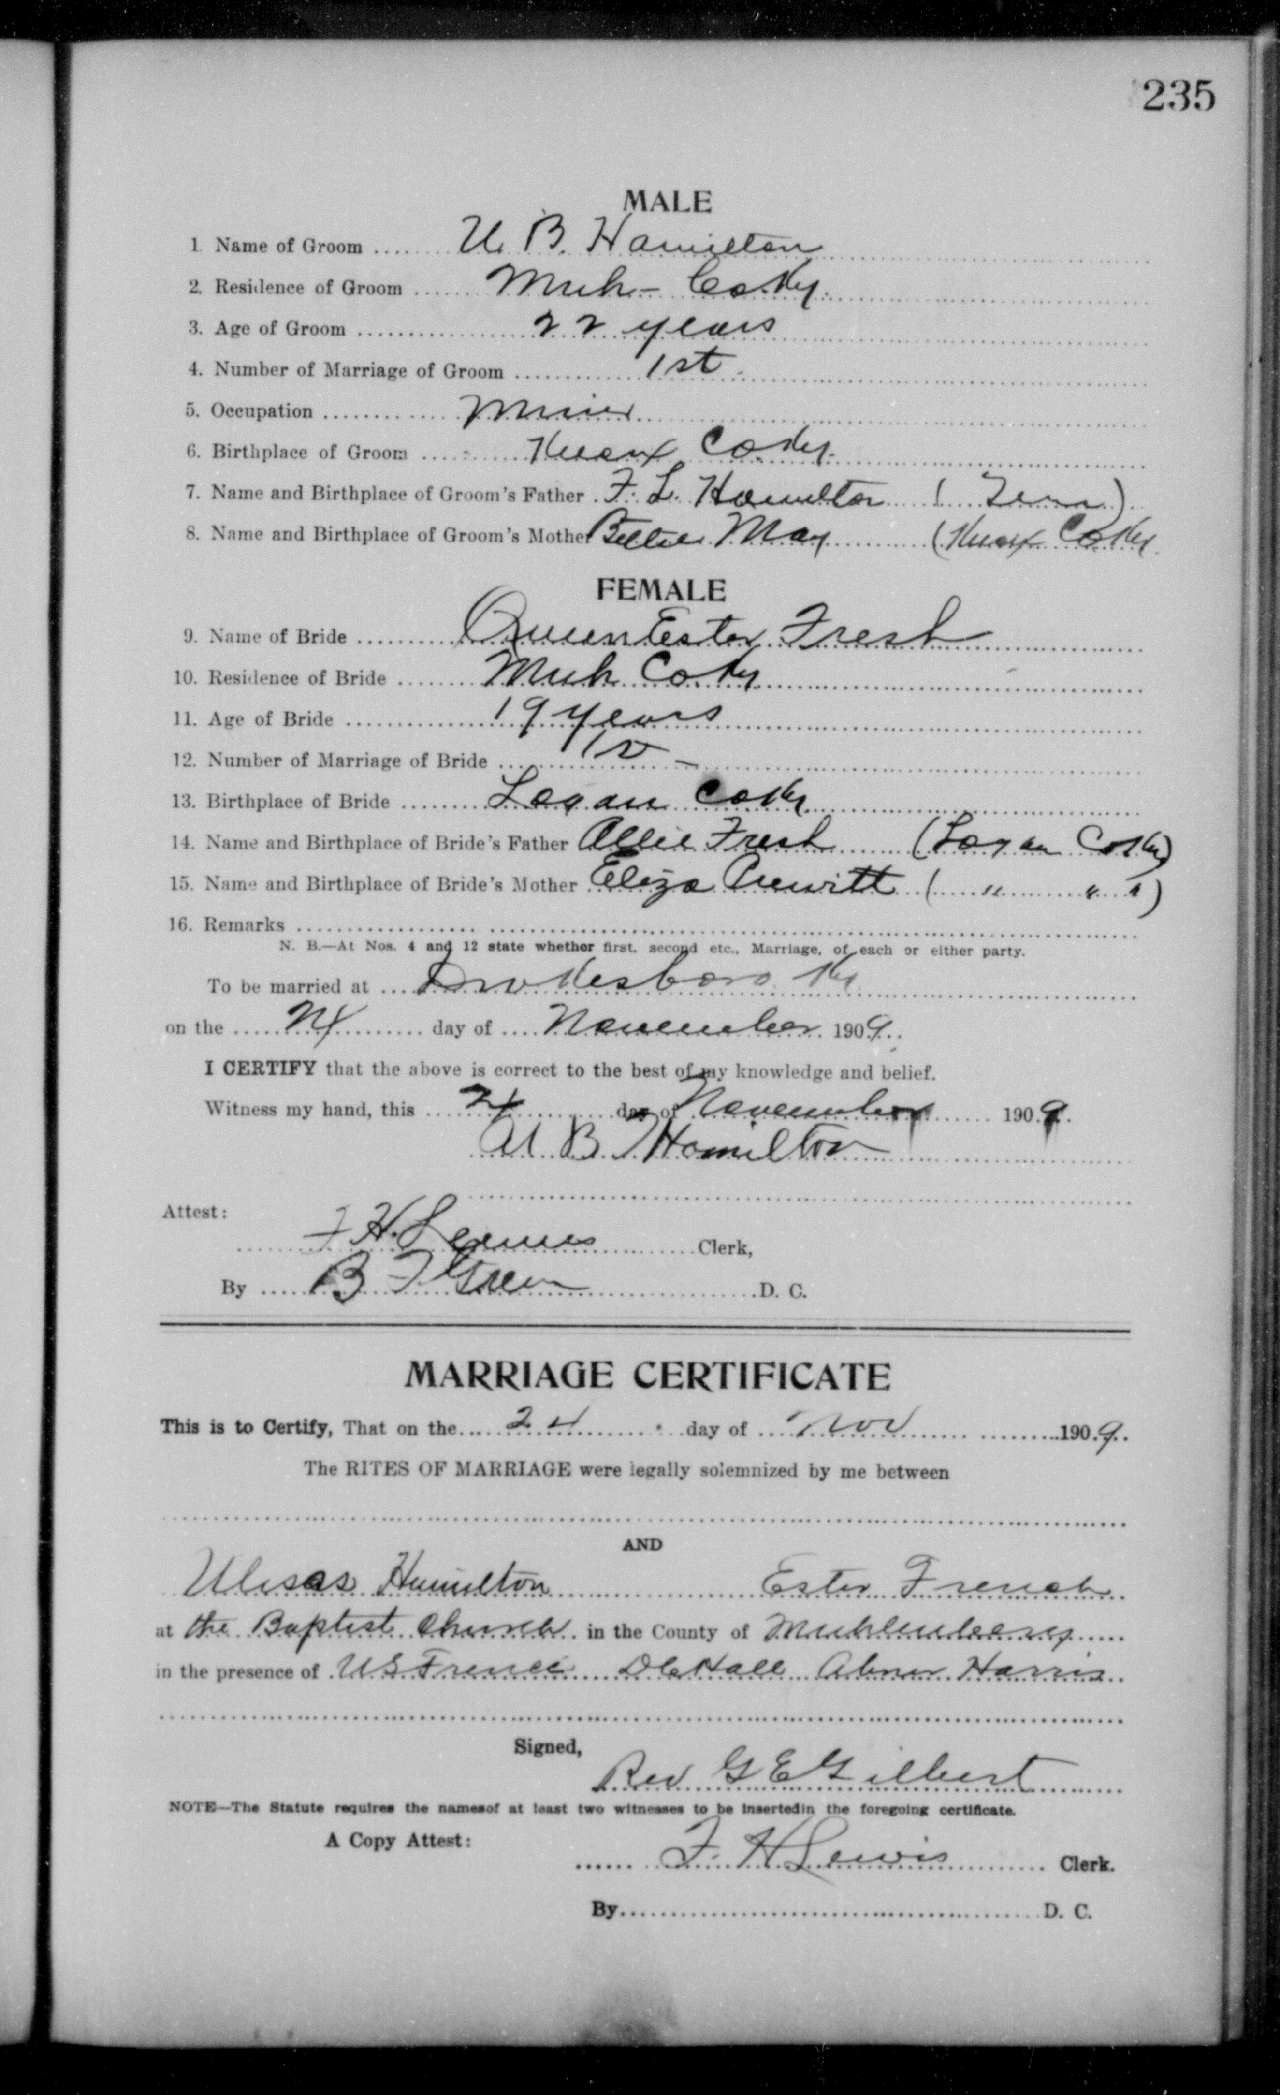 235
MALE
1. Name of Groom U. B. Hamilton
2. Residence of Groom Muh- Co Ky.
3. Age of Groom 22 years
4. Number of Marriage of Groom 1st
5. Occupation Miner
6. Birthplace of Groom Knox Co Ky.
7. Name and Birthplace of Groom's Father F. L. Hamilton ( Tenn )
8. Name and Birthplace of Groom's Mother Bettie May (Knox Co Ky
FEMALE
9. Name of Bride Queen Ester Fresh
10. Residence of Bride Muh Co Ky
11. Age of Bride 19 years
12. Number of Marriage of Bride
13. Birthplace of Bride Logan Co Ky
14. Name and Birthplace of Bride's Father Allie Fresh (Logan Co Ky)
15. Name and Birthplace of Bride's Mother Eliza Prewitt ( " " " )
16. Remarks
N. B.—At Nos. 4 and 12 state whether first, second etc., Marriage, of each or either party.
To be married at Drakesboro Ky
on the 24 day of November 1909.
I CERTIFY that the above is correct to the best of my knowledge and belief.
Witness my hand, this 24 day of November 1909.
U B Hamilton
Attest:
F H. Lewis Clerk,
By B F Green D. C.
MARRIAGE CERTIFICATE
This is to Certify, That on the 24 day of Nov 1909.
The RITES OF MARRIAGE were legally solemnized by me between
AND
Ulisas Hamilton Ester French
at the Baptist Church in the County of Muhlenberg
in the presence of U S French D C Hall Abner Harris
Signed,
Rev G E Gilbert
NOTE—The Statute requires the namesof at least two witnesses to be insertedin the foregoing certificate.
A Copy Attest:
F. H Lewis Clerk.
By D. C.